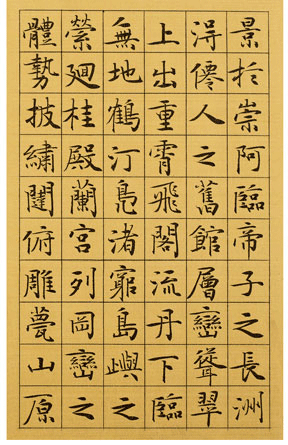 景扵崇阿臨帝子之長洲
淂僊人之舊館層巒聳翠
上出重霄飛閣流丹下臨
無地鶴汀鳧渚窮島嶼之
縈廻桂殿蘭宮列岡巒之
體勢披繡闥俯雕甍山原